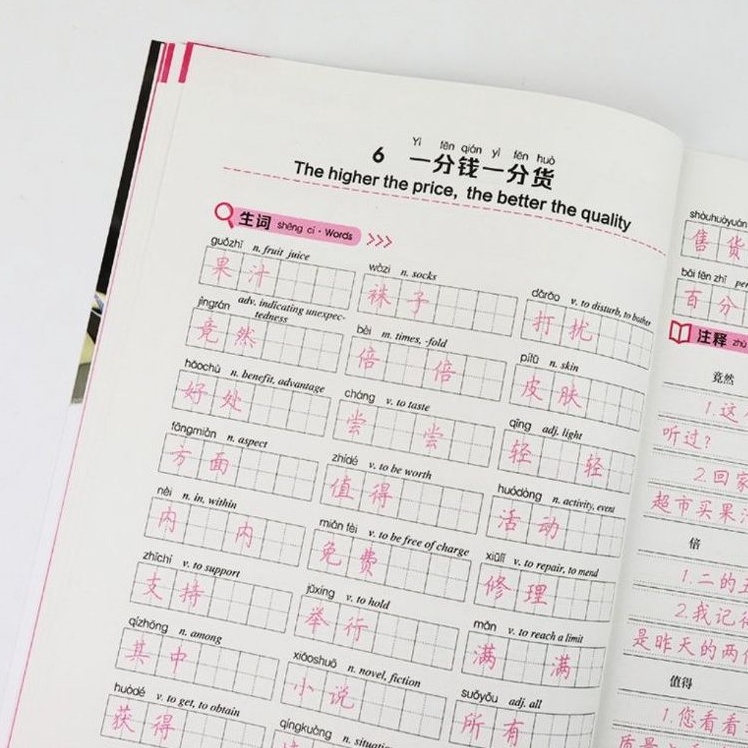 Yì fēn qián yì fēn huò
6 一分钱一分货
The higher the price, the better the quality
生词 shēng cí · Words
guǒzhī n. fruit juice
果 汁
wàzi n. socks
袜 子
dǎrǎo v. to disturb, to bother
打 扰
jìngrán adv. indicating unexpec-
tedness
竟 然
bèi m. times, -fold
倍 倍
pífū n. skin
皮 肤
hǎochù n. benefit, advantage
好 处
cháng v. to taste
尝 尝
qīng adj. light
轻 轻
fāngmiàn n. aspect
方 面
zhídé v. to be worth
值 得
huódòng n. activity, event
活 动
nèi n. in, within
内 内
miǎn fèi v. to be free of charge
免 费
xiūlǐ v. to repair, to mend
修 理
zhīchí v. to support
支 持
jǔxíng v. to hold
举 行
mǎn v. to reach a limit
满 满
qízhōng n. among
其 中
xiǎoshuō n. novel, fiction
小 说
suǒyǒu adj. all
所 有
huòdé v. to get, to obtain
获 得
qíngkuàng n.
shòuhuòyuán
售 货
bǎi fēn zhī
百 分
注释 zhù
竟然
1.这
听过?
2.回家
超市买果
倍
1.二的
2.我记得
是昨天的两
值得
1.您看看
质量